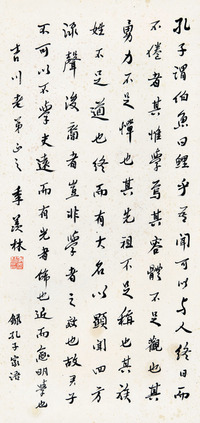 孔子謂伯魚曰鯉乎吾聞可以与人終日而
不倦者其惟學焉其容體不足觀也其
勇力不足憚也其先祖不足稱也其族
姓不足道也終而有大名以顯聞四方
流聲後裔者豈非學者之效也故君子
不可以不學夫遠而有光者飾也近而愈明學也
錄孔子家語
吉川老弟正之 季羨林